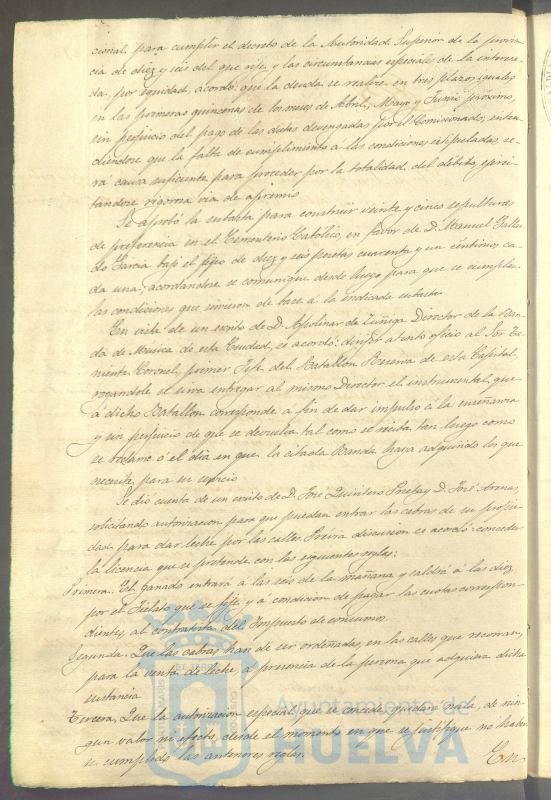 cional, para cumplir el decreto de la Autoridad Superior de la provin
cia de diez y seis del que rije, y las circunstancias especiales de la interesa-
da, por equidad, acordó: que la deuda se realice en tres plazos iguales
en las primeras quincenas de los meses de Abril, Mayo y Junio próximo,
sin perjuicio del pago de las dietas devengadas por el Comisionado, enten
diendose que la falta de cumplimiento a las condiciones estipuladas, se-
rá causa suficiente para proceder por la totalidad del débito, ejerci-
tandose rigorosa via de apremio
Se aprobó la subasta para construir veinte y cinco sepulturas
de preferencia en el Cementerio Católico, en favor de D. Manuel Galle
do Garcia bajo el tipo de diez y seis pesetas cuarenta y un céntimos ca-
da una; acordandose se comunique desde luego para que se cumplan
las condiciones que sirvieron de base á la indicada subasta
En vista de un escrito de D. Apolinar de Zúñiga Director de la Ban
da de Música de esta Ciudad, se acordó: dirijir atento oficio al Sor Te
niente Coronel, primer Jefe del Batallon Reserva de esta Capital,
rogandole se sirva entregar al mismo Director el instrumental, que
á dicho Batallon corresponde a fin de dar impulso á la enseñanza
y sin perjuicio de que se devuelva tal como se reciba, tan luego como
se reclame ó el dia en que la citada Banda haya adquirido los que
necesite para su servicio
Se dió cuenta de un escrito de D. José Quintero y D. José Arenas
solicitando autorizacion para que puedan entrar las cabras de su propie
dad para dar leche por las calles. Prévia discusion se acordó: conceder
la licencia que se pretende con las siguientes reglas:
Primera. El ganado entrará á las seis de la mañana y saldrá á las diez
por el Fielato que se fije, y á condicion de pagar las cuotas correspon-
dientes, al contratista del Impuesto de consumos.
Segunda. Que las cabras han de ser ordeñadas, en las calles que recorran,
para la venta de leche, á presencia de la persona que adquiera dicha
sustancia
Tercera. Que la autorizacion especial que se concede quedará nula, de nin-
gun valor ni efecto, desde el momento en que se justifique no haber
se cumplido las anteriores reglas.
En
Ayuntamiento de
HUELVA